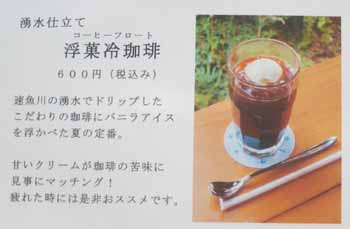 湧水仕立て
コーヒーフロート
浮菓冷珈琲
600円（税込み）
速魚川の湧水でドリップした
こだわりの珈琲にバニラアイス
を浮かべた夏の定番。
甘いクリームが珈琲の苦味に
見事にマッチング！
疲れた時には是非おススメです。